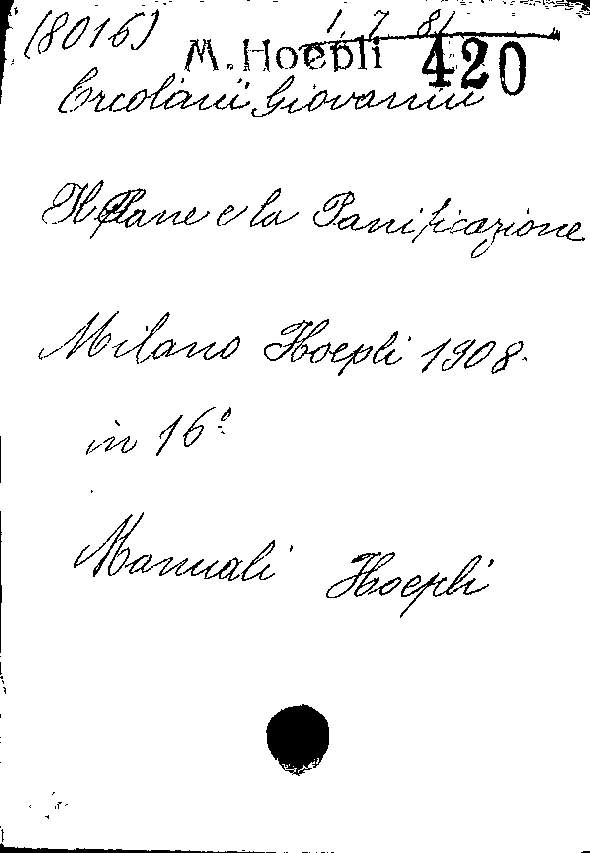 (8016) 1 7 81
M. Hoepli 420
Ercolani Giovanni
Il Pane e la Panificazione
Milano Hoepli 1908.
in 16º
Manuali Hoepli